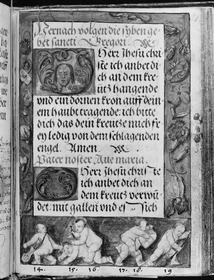 Hernach volgen die siben ge
bet sancti Gregorii
O Herr Jhesu chri
ste ich anbet di
ch an dem kreu
tz hangende
und ein dornen kron auff dein
em haubt tragende: ich bitte
dich das dein kreutze mich fr
ey ledig von dem schlagenden
engel. Amen.
Pater noster Aue maria.
O Herr Jhesu christe
ich anbet dich an
dem kreutz verwu
det. mit gallen und es-sich
14. 15. 16. 17. 18. 19